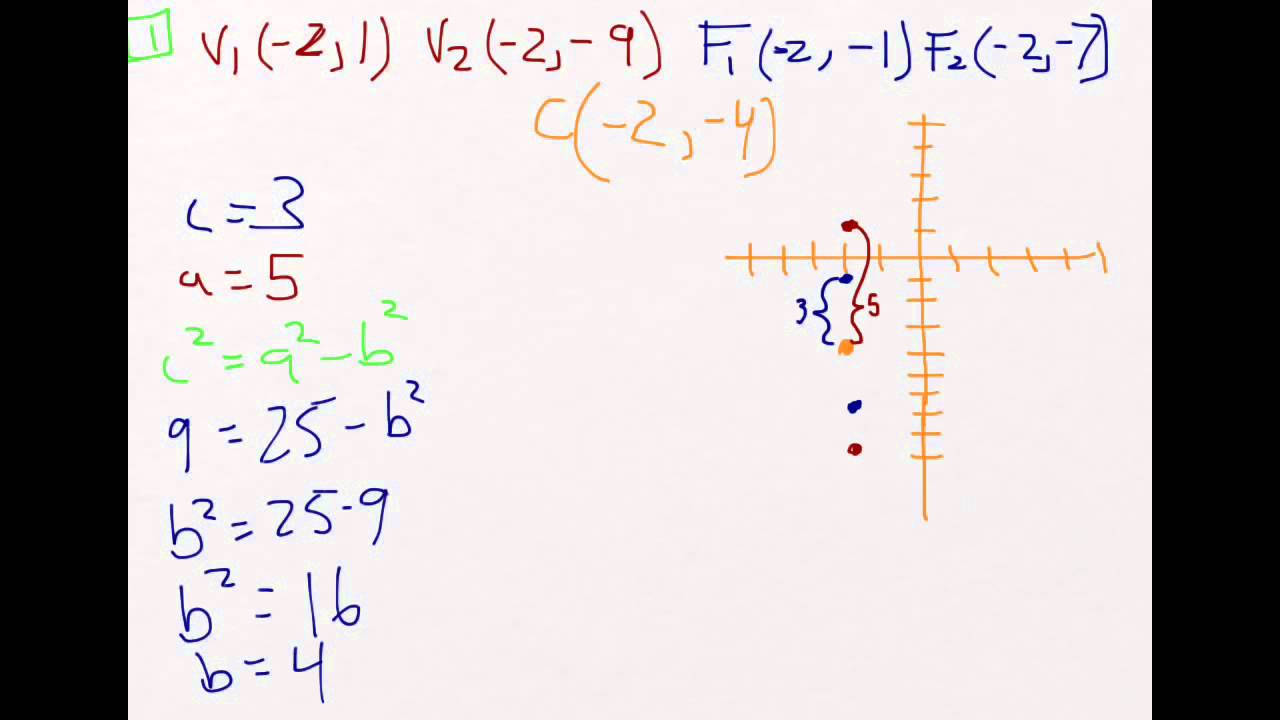 1 V₁(-2,1) V₂(-2,-9) F₁(-2,-1) F₂(-2,-7)
C(-2,-4)
c=3
a=5
c²=a²-b²
9=25-b²
b²=25-9
b²=16
b=4
3 5